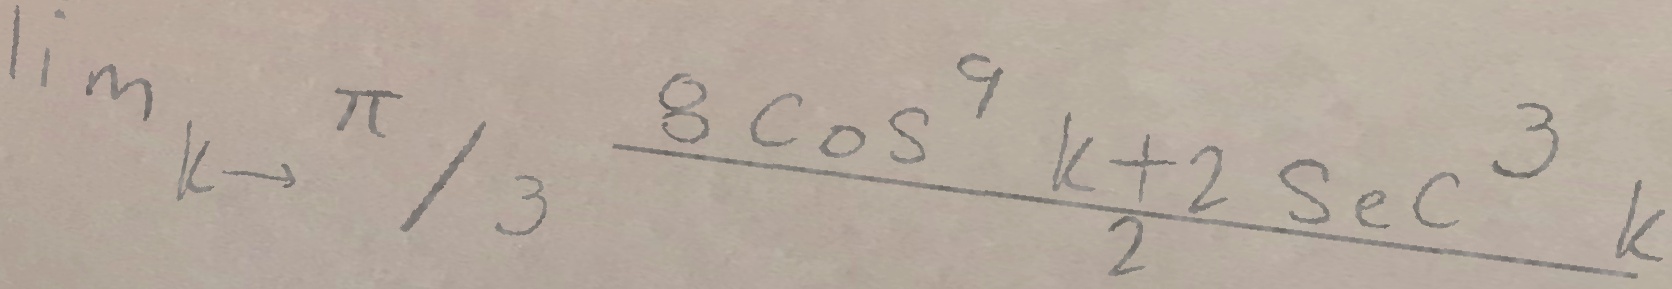 lim k→ π/3 (8 cos^9 k + 2 sec^3 k)/2